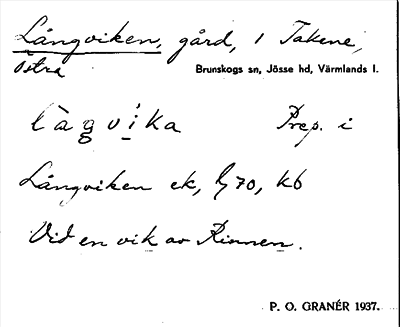 Långviken, gård, i Takene,
Östra
Brunskogs sn, Jösse hd, Värmlands l.
làgvi̍ka Prep. i
Långviken ek, by 70, kb
Vid en vik av Rinnen.
P. O. GRANÉR 1937.